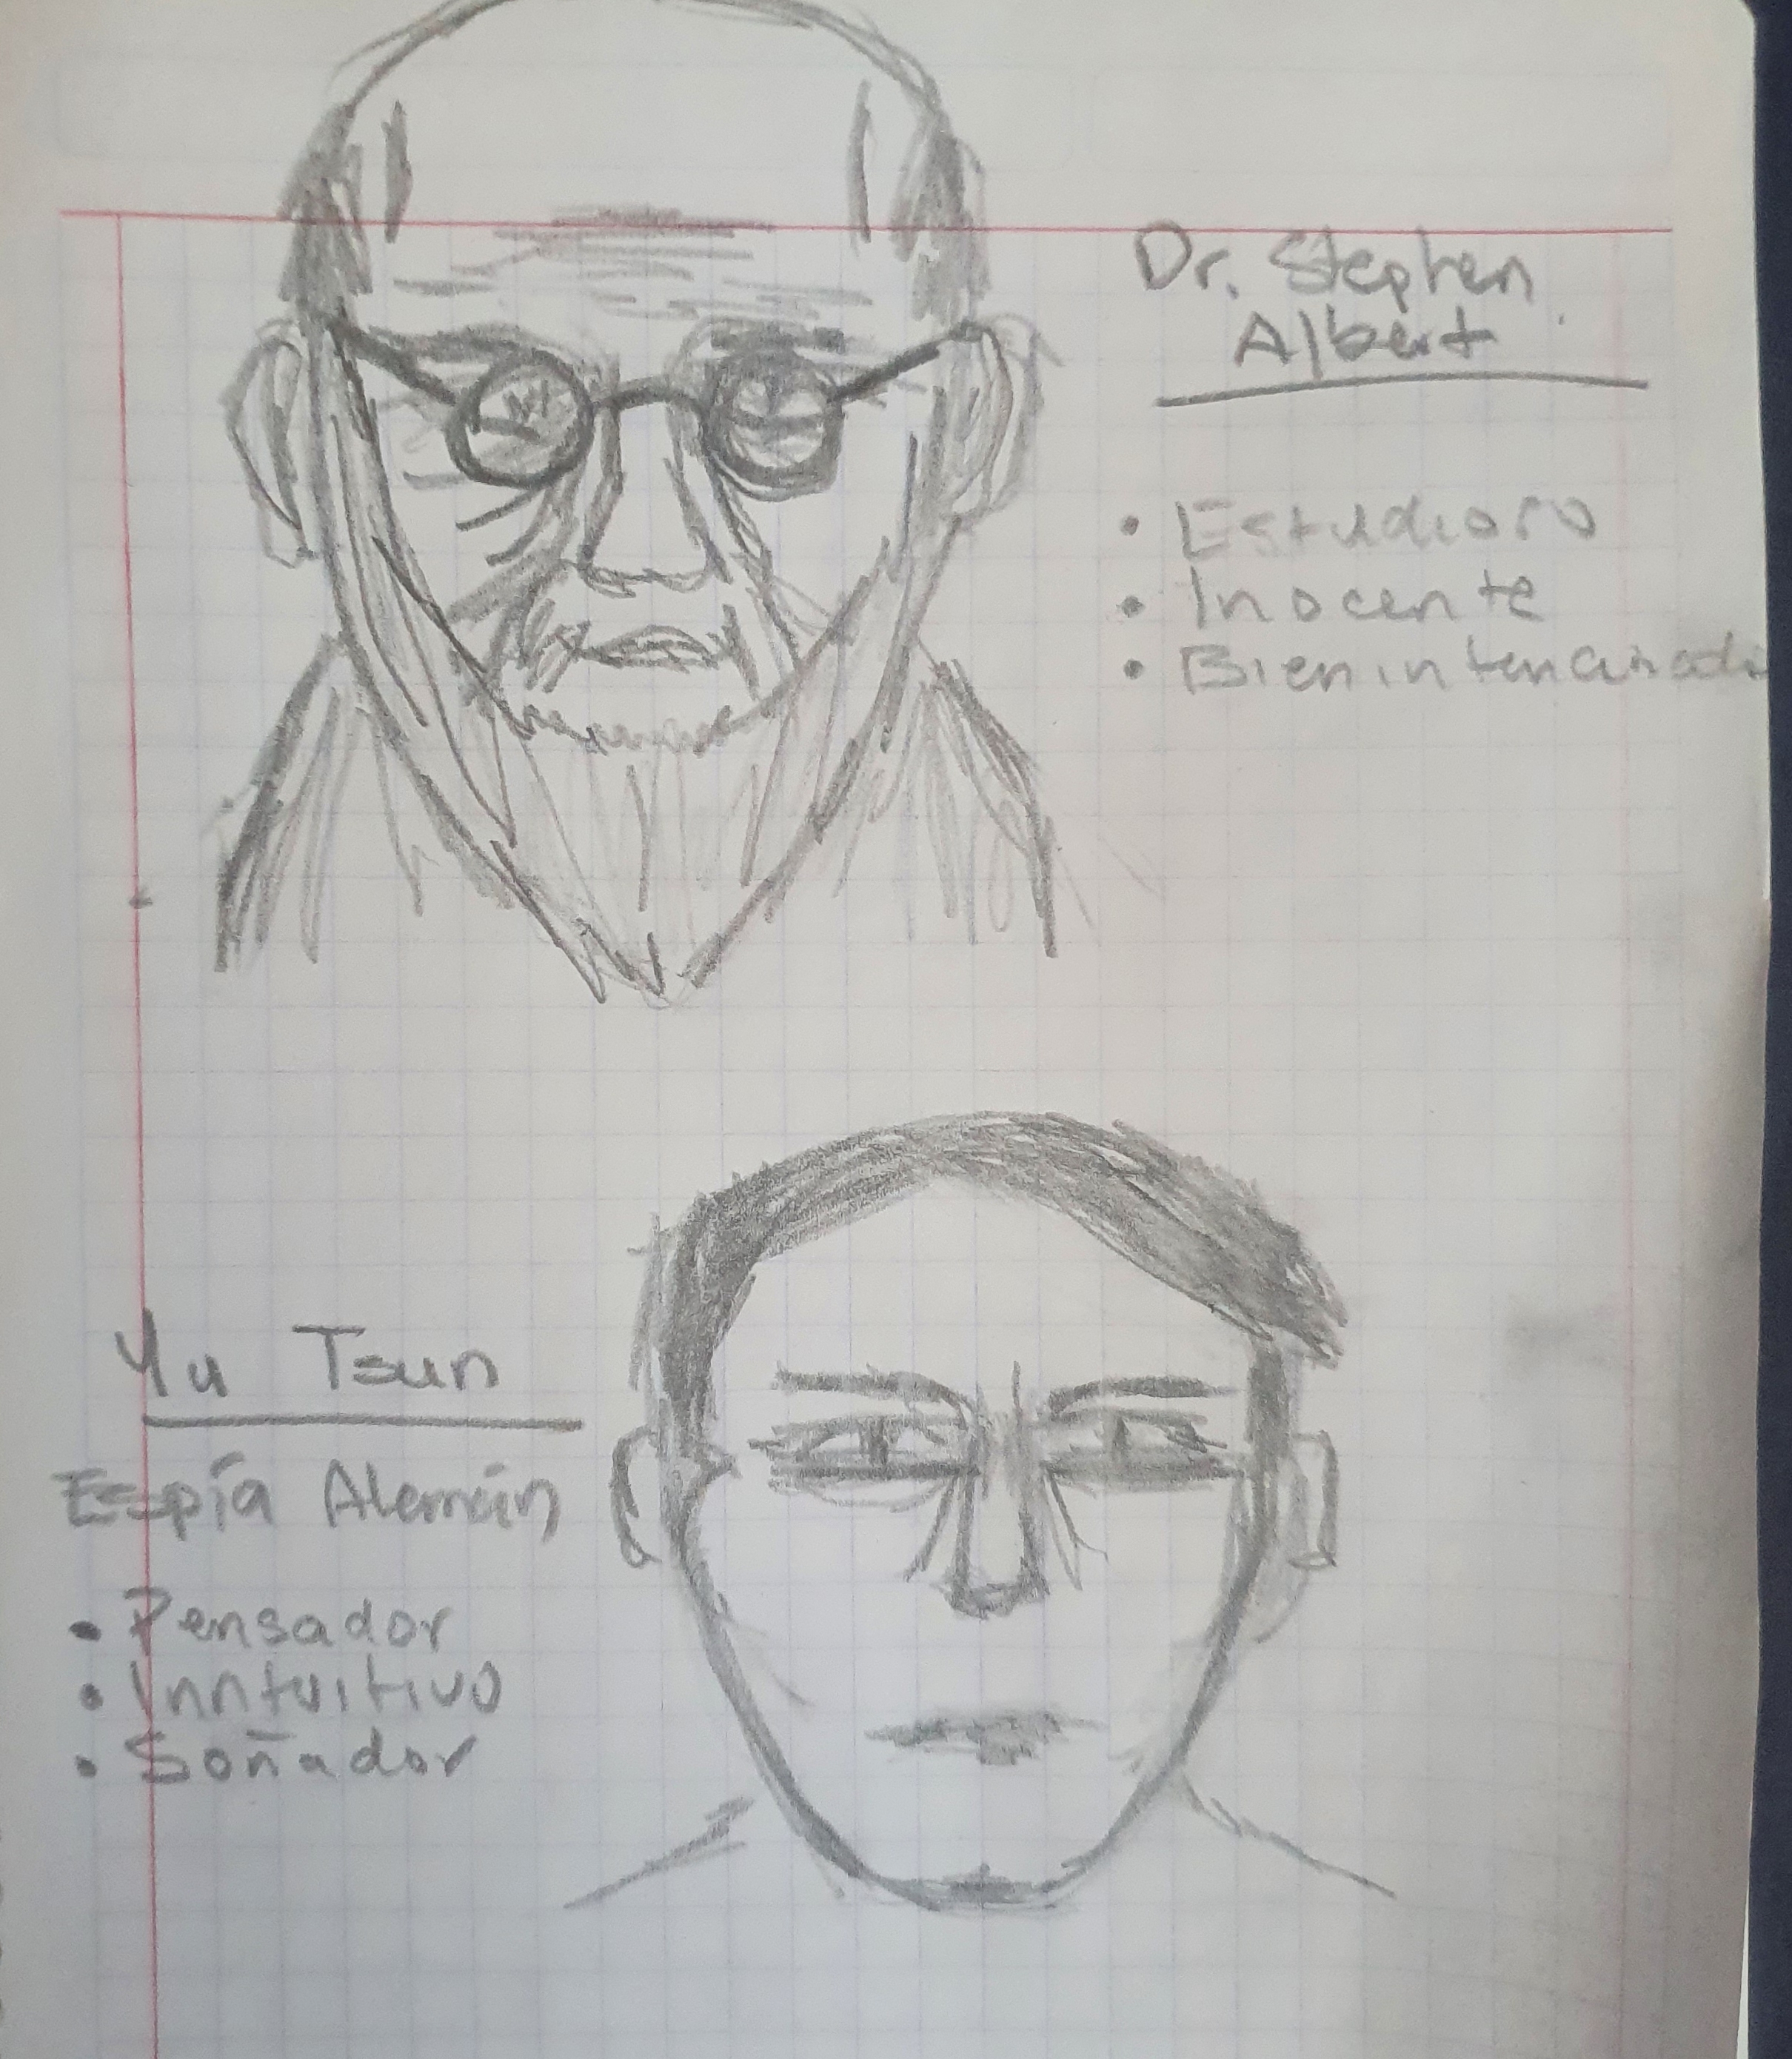 Dr. Stephen
Albert
• Estudioso
• Inocente
• Bien intencionado
Yu Tsun
Espía Alemán
• Pensador
• Inntuitivo
• Soñador